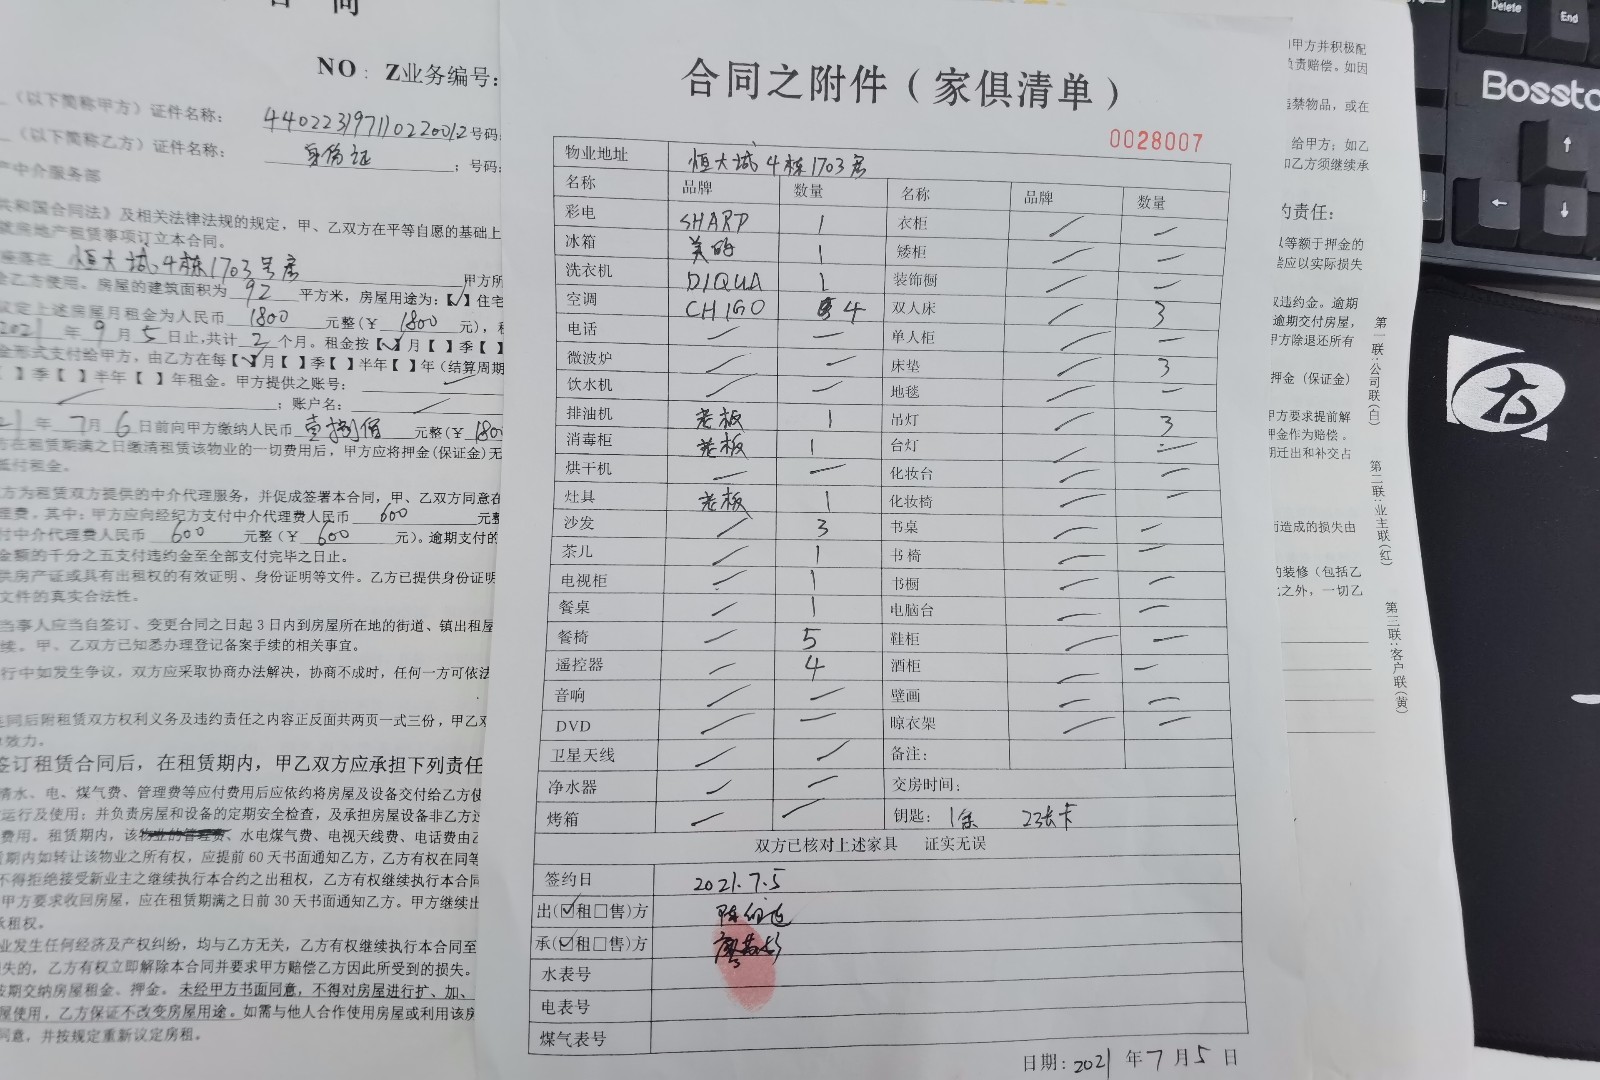 合同
NO：Z业务编号：
（以下简称甲方）证件名称： 440223197110220012 号码：
（以下简称乙方）证件名称： 身份证 ；号码：
产中介服务部
共和国合同法》及相关法律法规的规定，甲、乙双方在平等自愿的基础上
就房地产租赁事项订立本合同。
座落在 恒大城4栋1703号房 甲方所
给乙方使用。房屋的建筑面积为 92 平方米，房屋用途为：【√】住宅
议定上述房屋月租金为人民币 1800 元整（￥ 1800 元），租
2021 年 9 月 5 日止，共计 2 个月。租金按【√】月【 】季【 】
金形式支付给甲方，由乙方在每【√】月【 】季【 】半年【 】年（结算周期
】季【 】半年【 】年租金。甲方提供之账号：
；账户名：
21 年 7 月 6 日前向甲方缴纳人民币 壹捌佰 元整（￥ 180
方在租赁期满之日缴清租赁该物业的一切费用后，甲方应将押金(保证金)无
抵付租金。
方为租赁双方提供的中介代理服务，并促成签署本合同，甲、乙双方同意在
理费，其中：甲方应向经纪方支付中介代理费人民币 600 元整
付中介代理费人民币 600 元整（￥ 600 元）。逾期支付的
金额的千分之五支付违约金至全部支付完毕之日止。
供房产证或具有出租权的有效证明、身份证明等文件。乙方已提供身份证明
文件的真实合法性。
当事人应当自签订、变更合同之日起 3 日内到房屋所在地的街道、镇出租屋
续。甲、乙双方已知悉办理登记备案手续的相关事宜。
行中如发生争议，双方应采取协商办法解决，协商不成时，任何一方可依法
同后附租赁双方权利义务及违约责任之内容正反面共两页一式三份，甲乙双
效力。
签订租赁合同后，在租赁期内，甲乙双方应承担下列责任
清水、电、煤气费、管理费等应付费用后应依约将房屋及设备交付给乙方使
运行及使用；并负责房屋和设备的定期安全检查，及承担房屋设备非乙方过
费用。租赁期内，该物业的管理费、水电煤气费、电视天线费、电话费由乙
赁期内如转让该物业之所有权，应提前 60 天书面通知乙方，乙方有权在同等
不得拒绝接受新业主之继续执行本合约之出租权，乙方有权继续执行本合同
甲方要求收回房屋，应在租赁期满之日前 30 天书面通知乙方。甲方继续出
承租权。
业发生任何经济及产权纠纷，均与乙方无关，乙方有权继续执行本合同至
失的，乙方有权立即解除本合同并要求甲方赔偿乙方因此所受到的损失。
按期交纳房屋租金、押金。未经甲方书面同意，不得对房屋进行扩、加、
屋使用，乙方保证不改变房屋用途。如需与他人合作使用房屋或利用该房
同意，并按规定重新议定房租。
合同之附件（家俱清单）
0028007
物业地址 恒大城4栋1703房
名称 品牌 数量 名称 品牌 数量
彩电 SHARP 1 衣柜 / —
冰箱 美的 1 矮柜 / —
洗衣机 DIQUA 1 装饰橱 / —
空调 CHIGO 4 双人床 / 3
电话 — — 单人柜 / —
微波炉 / — 床垫 / 3
饮水机 / — 地毯 / —
排油机 老板 1 吊灯 / 3
消毒柜 老板 1 台灯 / —
烘干机 — — 化妆台 / —
灶具 老板 1 化妆椅 / —
沙发 / 3 书桌 / —
茶儿 / 1 书椅 / —
电视柜 / 1 书橱 / —
餐桌 / 1 电脑台 / —
餐椅 / 5 鞋柜 / —
遥控器 / 4 酒柜 / —
音响 / — 壁画 / —
DVD / — 晾衣架 / —
卫星天线 / / 备注：
净水器 / — 交房时间：
烤箱 / / 钥匙： 1条 2张卡
双方已核对上述家具 证实无误
签约日 2021.7.5
出(☑租□售)方
承(☑租□售)方
水表号
电表号
煤气表号
日期：2021 年 7 月 5 日
甲方并积极配
负责赔偿。如因
违禁物品，或在
给甲方；如乙
如乙方须继续承
约责任：
以等额于押金的
偿应以实际损失
双违约金。逾期
逾期交付房屋，
甲方除退还所有
押金（保证金）
甲方要求提前解
押金作为赔偿。
期迁出和补交占
而造成的损失由
的装修（包括乙
之外，一切乙
第一联：公司联（白）
第二联：业主联（红）
第三联：客户联（黄）
Delete
End
Bossto
↑
←
↓